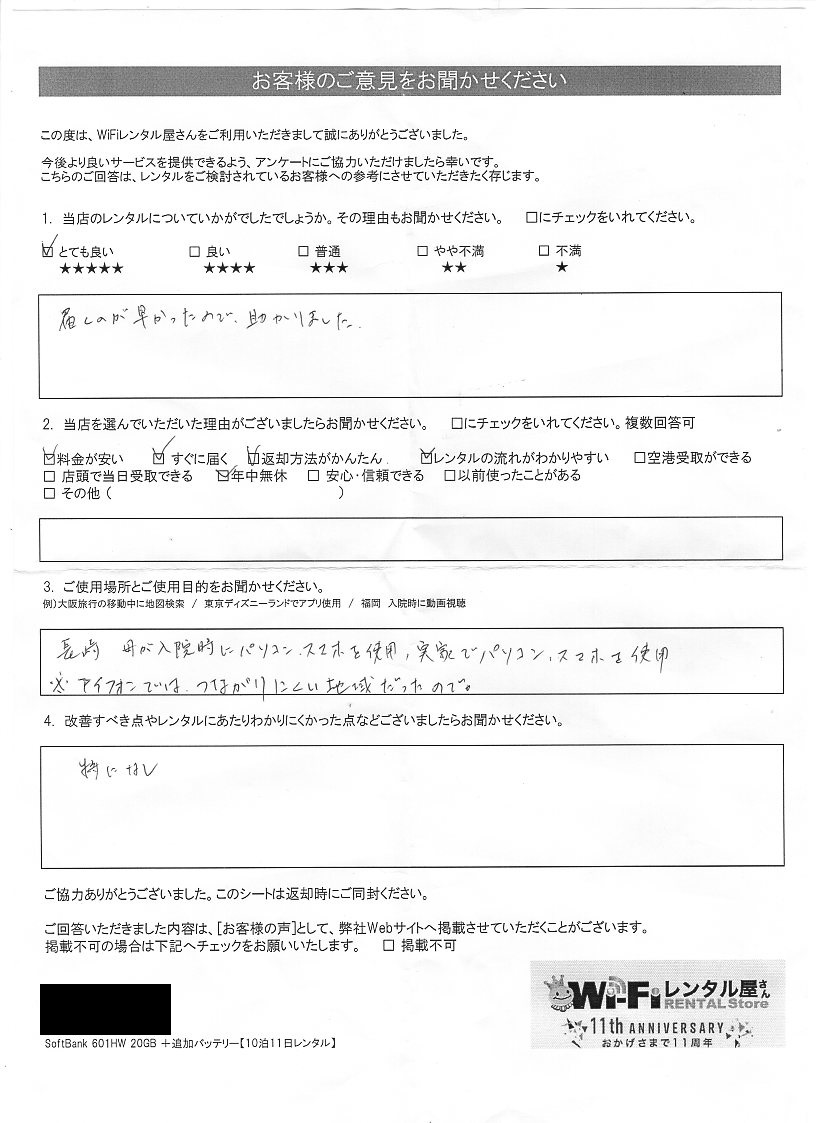 お客様のご意見をお聞かせください
この度は、WiFiレンタル屋さんをご利用いただきまして誠にありがとうございました。
今後より良いサービスを提供できるよう、アンケートにご協力いただけましたら幸いです。
こちらのご回答は、レンタルをご検討されているお客様への参考にさせていただきたく存じます。
1. 当店のレンタルについていかがでしたでしょうか。その理由もお聞かせください。 □にチェックをいれてください。
☑ とても良い □ 良い □ 普通 □ やや不満 □ 不満
★★★★★ ★★★★ ★★★ ★★ ★
届くのが早かったので、助かりました。
2. 当店を選んでいただいた理由がございましたらお聞かせください。 □にチェックをいれてください。複数回答可
☑料金が安い ☑ すぐに届く ☑返却方法がかんたん ☑レンタルの流れがわかりやすい □空港受取ができる
□ 店頭で当日受取できる ☑年中無休 □ 安心・信頼できる □以前使ったことがある
□ その他 ( )
3. ご使用場所とご使用目的をお聞かせください。
例)大阪旅行の移動中に地図検索 / 東京ディズニーランドでアプリ使用 / 福岡 入院時に動画視聴
長崎 母が入院時にパソコン、スマホを使用、実家でパソコン、スマホを使用
※アイフォンでは、つながりにくい地域だったので。
4. 改善すべき点やレンタルにあたりわかりにくかった点などございましたらお聞かせください。
特になし
ご協力ありがとうございました。このシートは返却時にご同封ください。
ご回答いただきました内容は、[お客様の声]として、弊社Webサイトへ掲載させていただくことがございます。
掲載不可の場合は下記へチェックをお願いいたします。 □ 掲載不可
Wi-Fiレンタル屋さん
RENTAL Store
11th ANNIVERSARY
おかげさまで11周年
SoftBank 601HW 20GB +追加バッテリー【10泊11日レンタル】